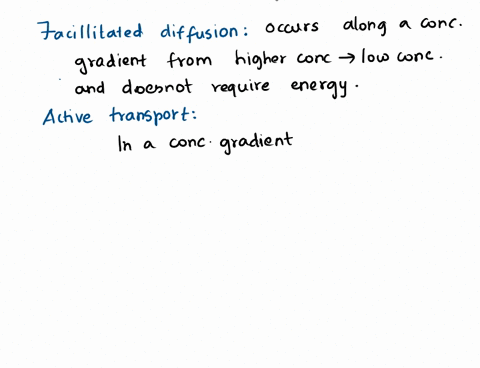 Facillitated diffusion: occurs along a conc.
gradient from higher conc → low conc.
and doesnot require energy.
Active transport:
In a conc. gradient